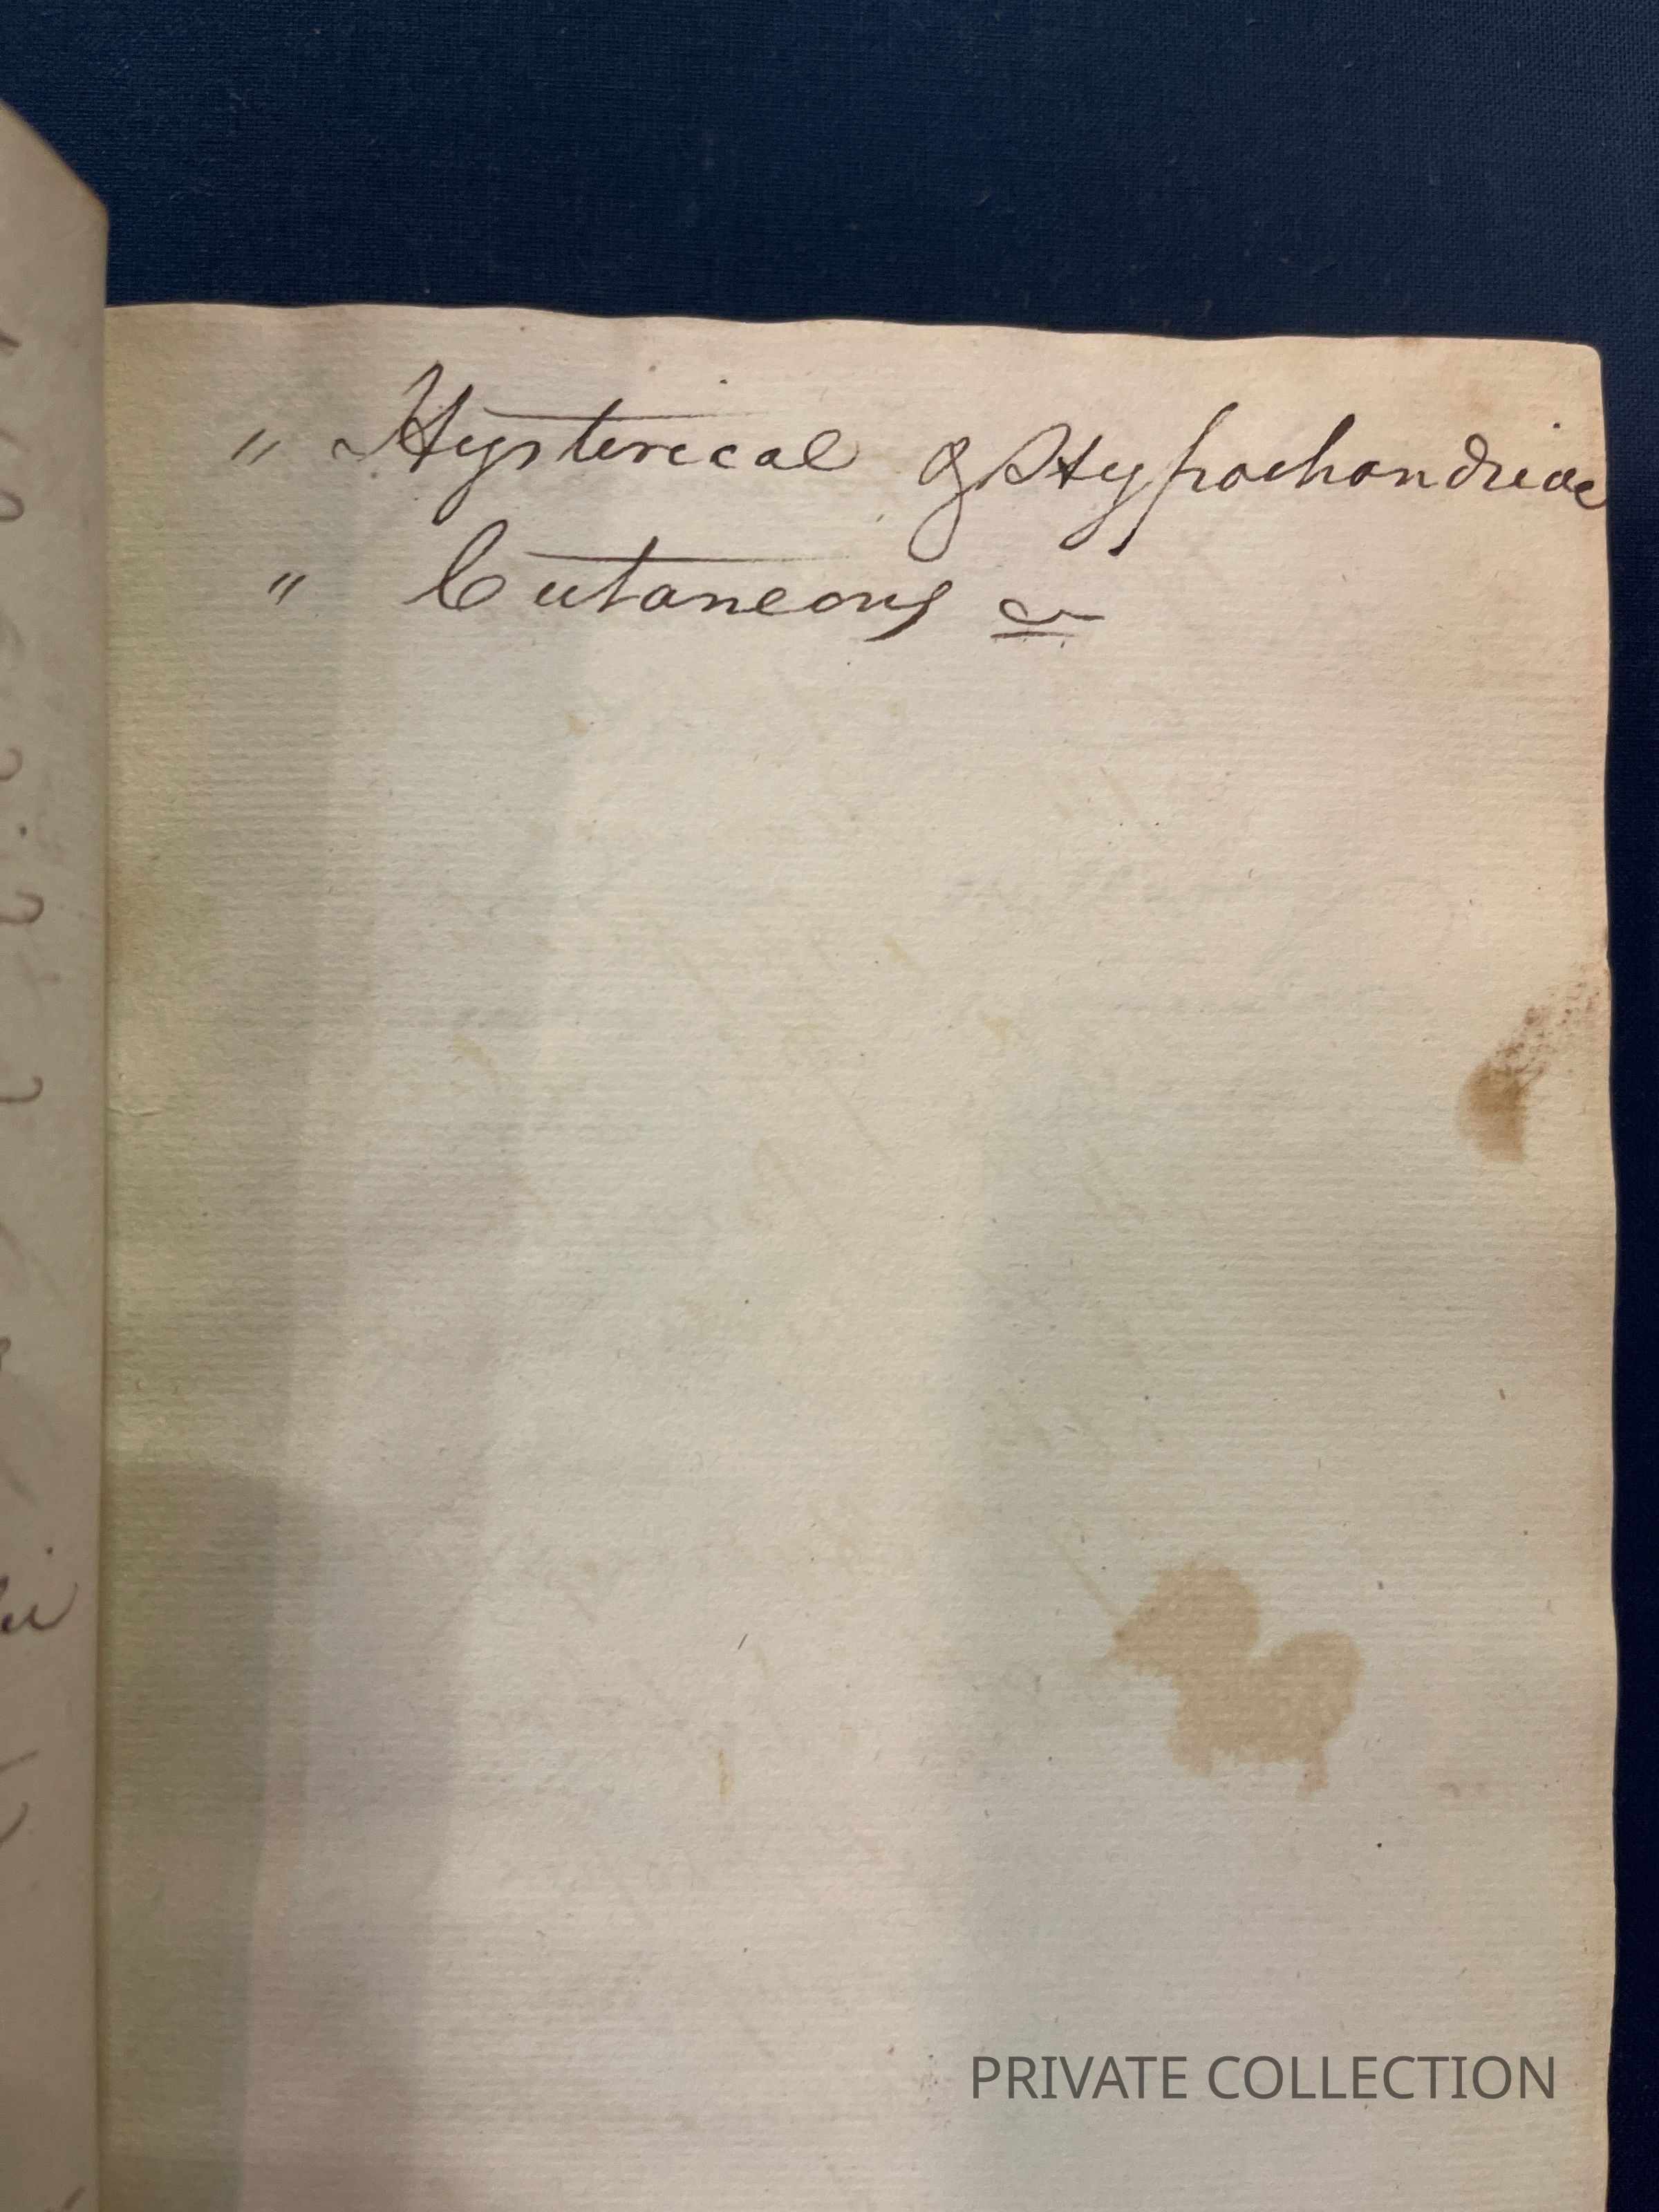 " Hysterical & Hypochondriac
" Cutaneous
PRIVATE COLLECTION